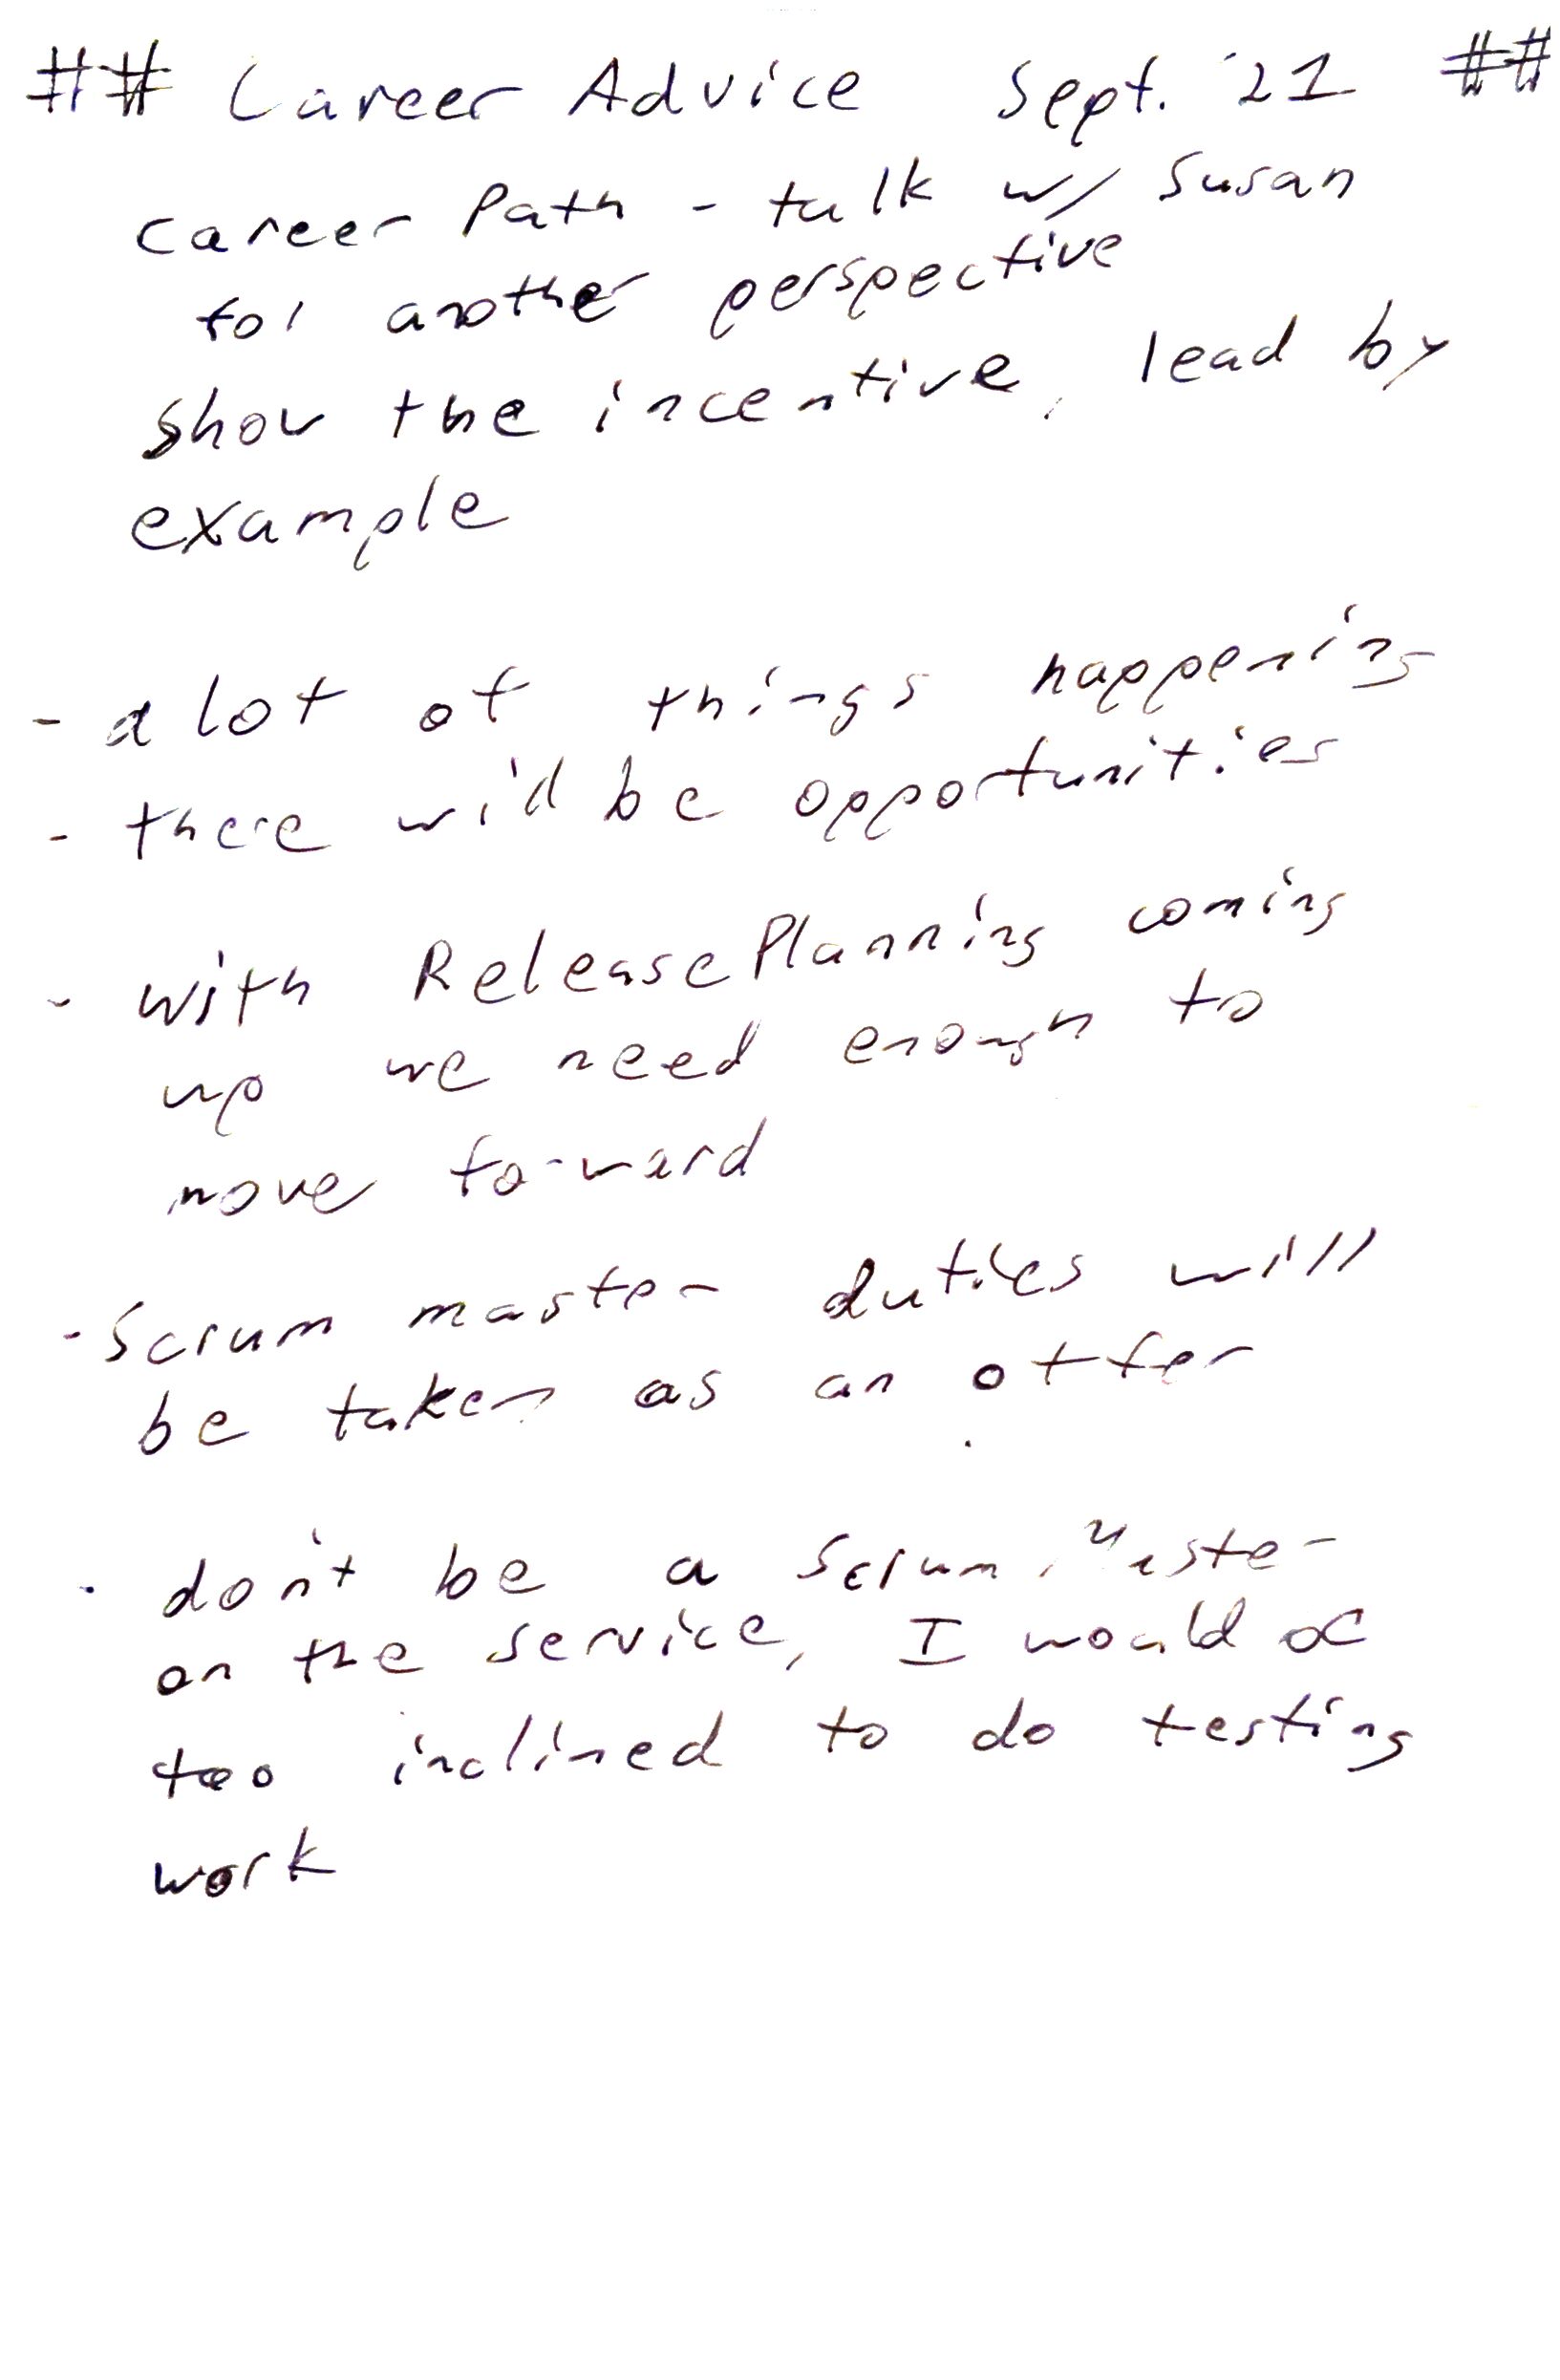 ## Career Advice Sept. '21 ##
Career Path - talk w/ Susan
for another perspective
show the incentive, lead by
example
- a lot of things happening
- there will be opportunities
- with Release Planning coming
up we need enough to
move forward
- Scrum master duties will
be taken as an offer
- don't be a Scrum Master
on the service, I would be
too inclined to do testing
work